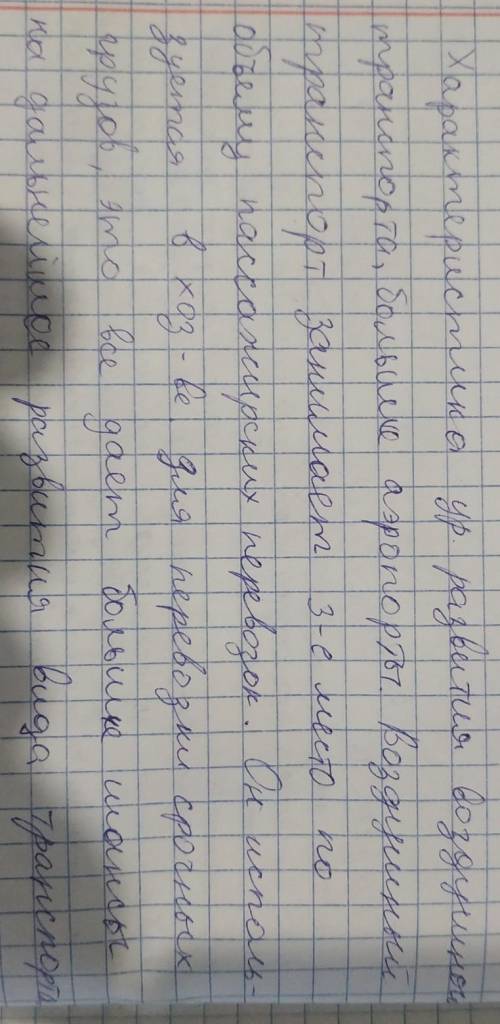 Характеристика ур. развития воздушного
транспорта, большие аэропорты. Воздушный
транспорт занимает 3-е место по
объёму пассажирских перевозок. Он исполь-
зуется в хоз-ве для перевозки срочных
грузов, это все дает большие шансы
на дальнейшое развития вида транспорта